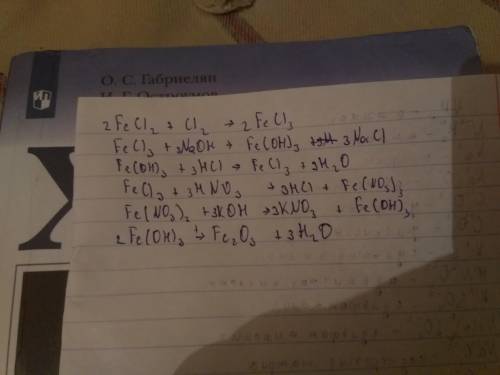 О. С. Габриелян
И. Г. Остроумов
2FeCl₂ + Cl₂ → 2FeCl₃
FeCl₃ + 3NaOH → Fe(OH)₃ + 3NaCl
Fe(OH)₃ + 3HCl → FeCl₃ + 3H₂O
FeCl₃ + 3HNO₃ → 3HCl + Fe(NO₃)₃
Fe(NO₃)₃ + 3KOH → 3KNO₃ + Fe(OH)₃
2Fe(OH)₃ → Fe₂O₃ + 3H₂O